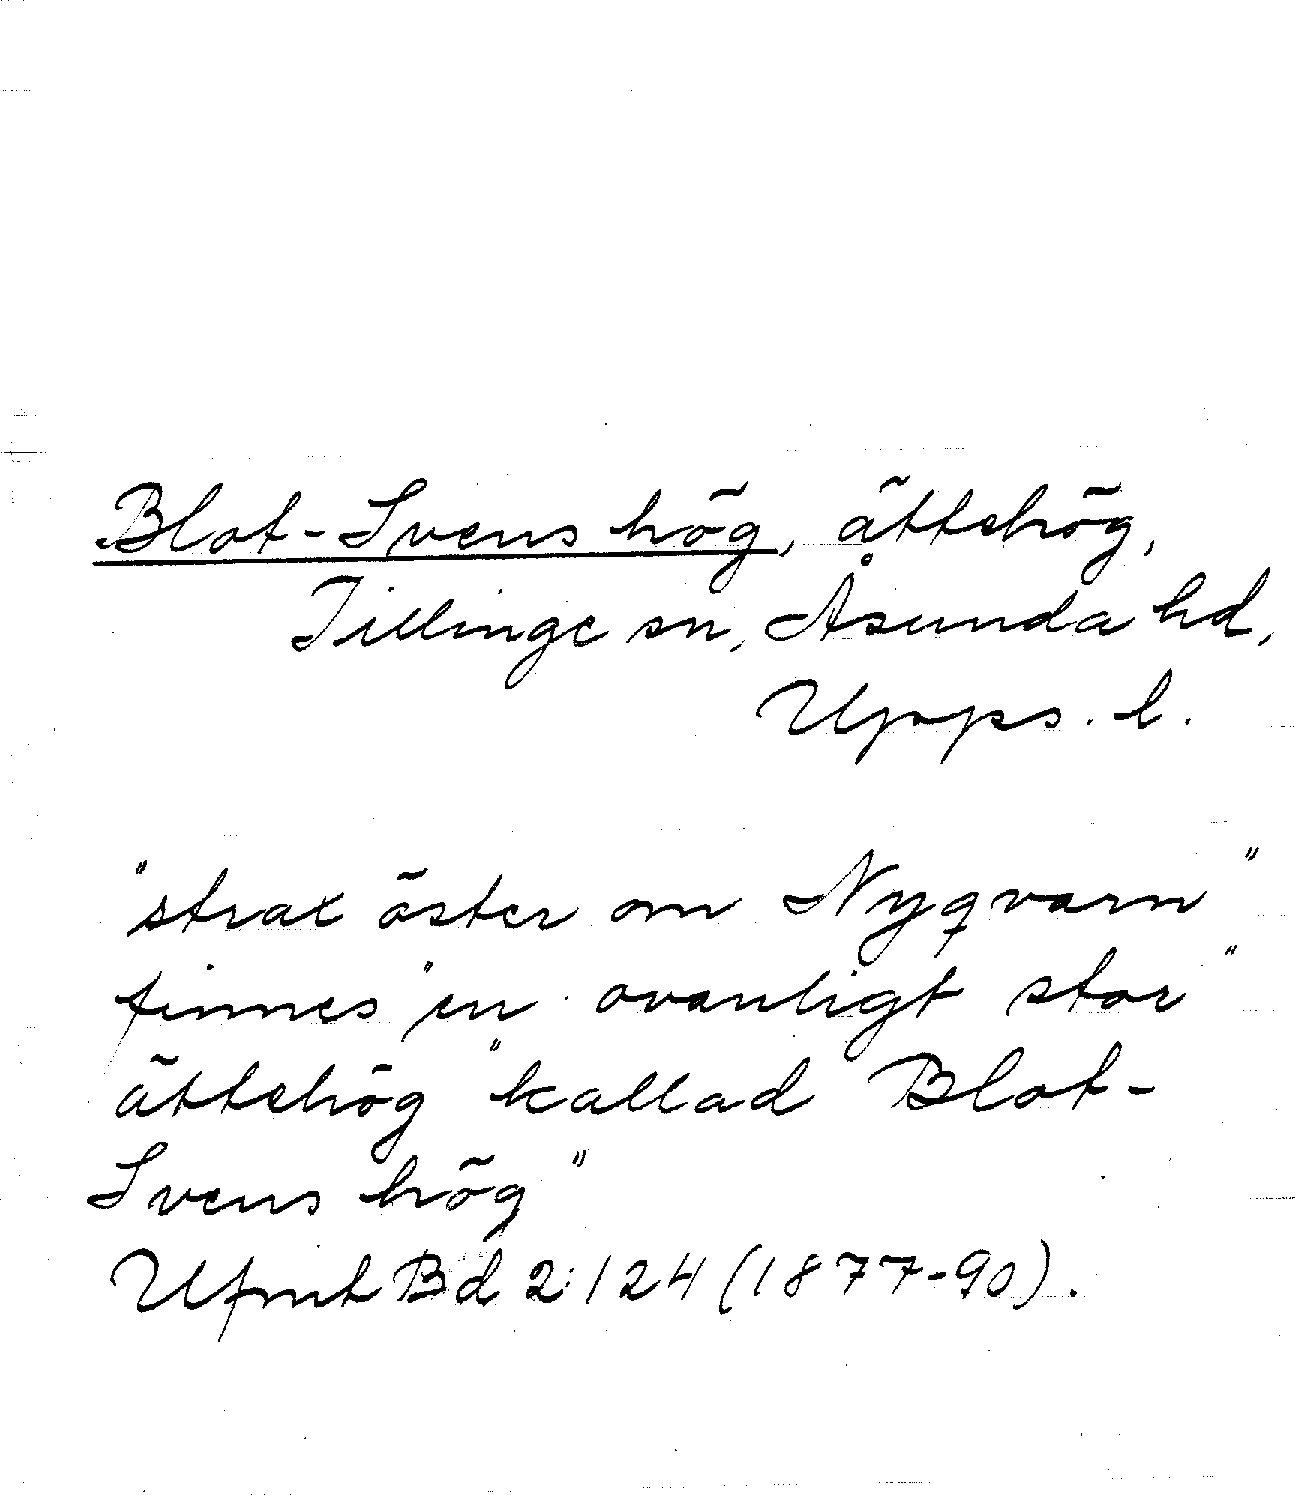 Blot-Svens hög, ättehög,
Tillinge sn, Åsunda hd,
Upps. l.
"strax öster om Nyqvarn"
finnes "en ovanligt stor"
ättehög "kallad Blot-
Svens hög"
Ufmt Bd 2:124 (1877-90).